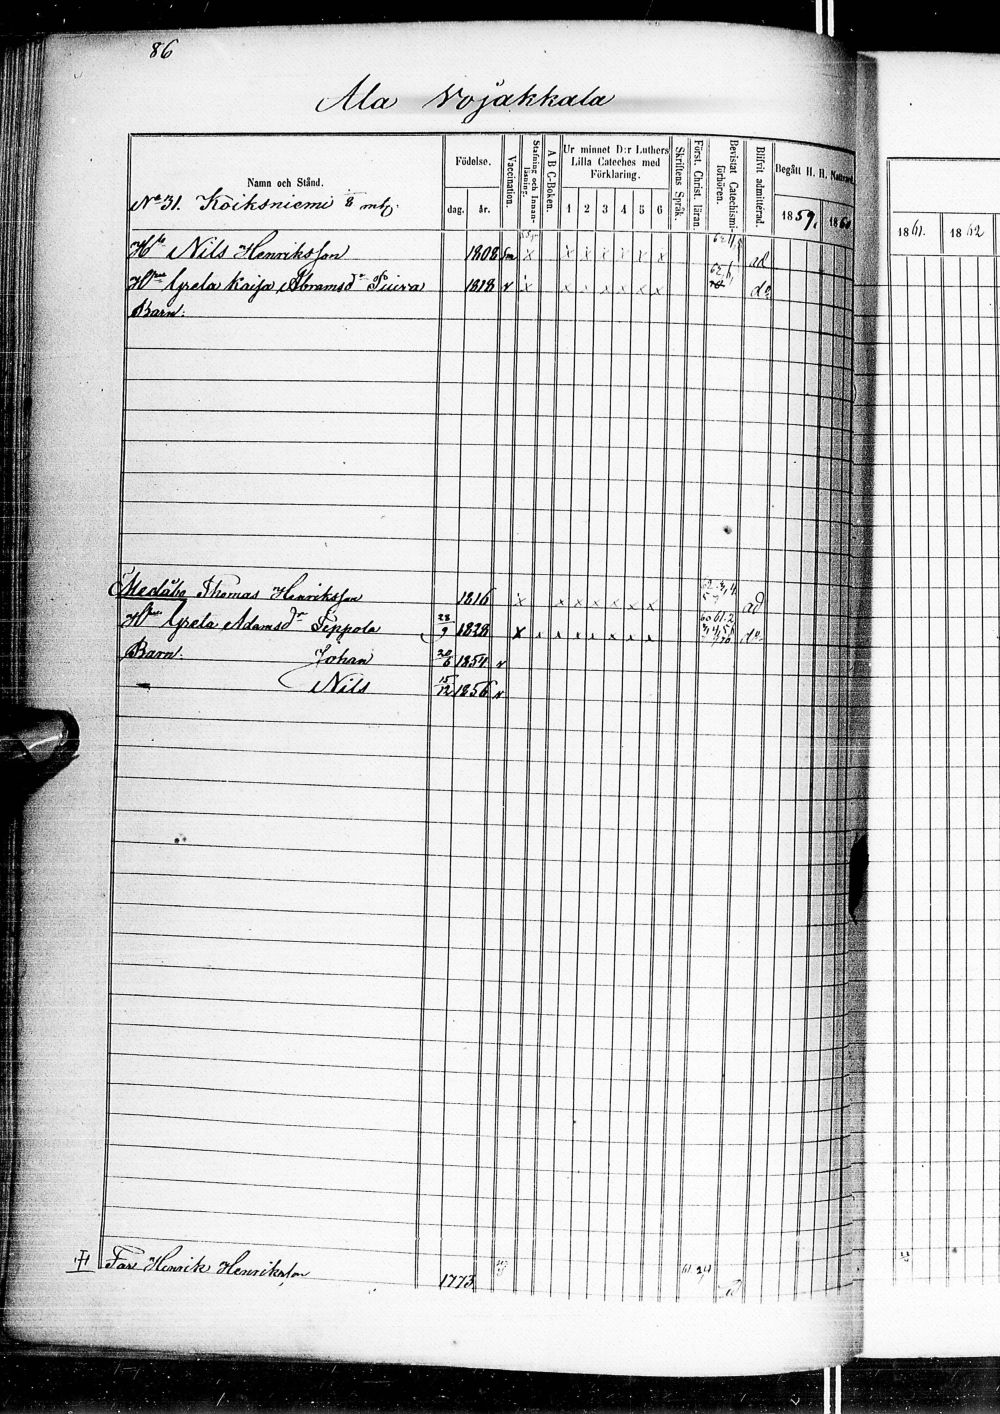 86
Ala Vojakkala
Namn och Stånd.
Födelse.
dag. år.
Vaccination.
Stafning och Innanläsning.
A B C-Boken.
Ur minnet D:r Luthers Lilla Cateches med Förklaring.
1 2 3 4 5 6
Skriftens Språk.
Först. Christ. läran.
Bevistat Catechismi-förhören.
Blifvit admitterad.
Begått H. H. Nattvard
1859. 1860
1861. 1862
No 31. Koiksniemi 8 mtl.
Nils Henriksson 1808 x x x x x x x ad
Greta Kaisa Abramsdr Piuva 1818 v x x x x x x x do
Barn:
Medåbo Thomas Henriksson 1816 x x x x x x x ad
Greta Adamsdr Seppola 28/9 1828 do
Barn: Johan 20/6 1854 v
Nils 15/12 1856 v
Far Henrik Henriksson 1773